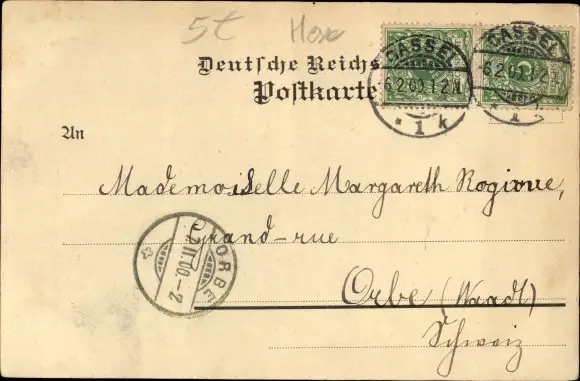 5t Hose
Deutsche Reichs
Postkarte
CASSEL
6.2.00.1-2N.
* 1 k
CASSEL
6.2.00.1-2N.
* 1 k
An
Mademoiselle Margareth
Grand-rue
Orbe (Waadt)
Schweiz
ORBE
7.II.00.-2